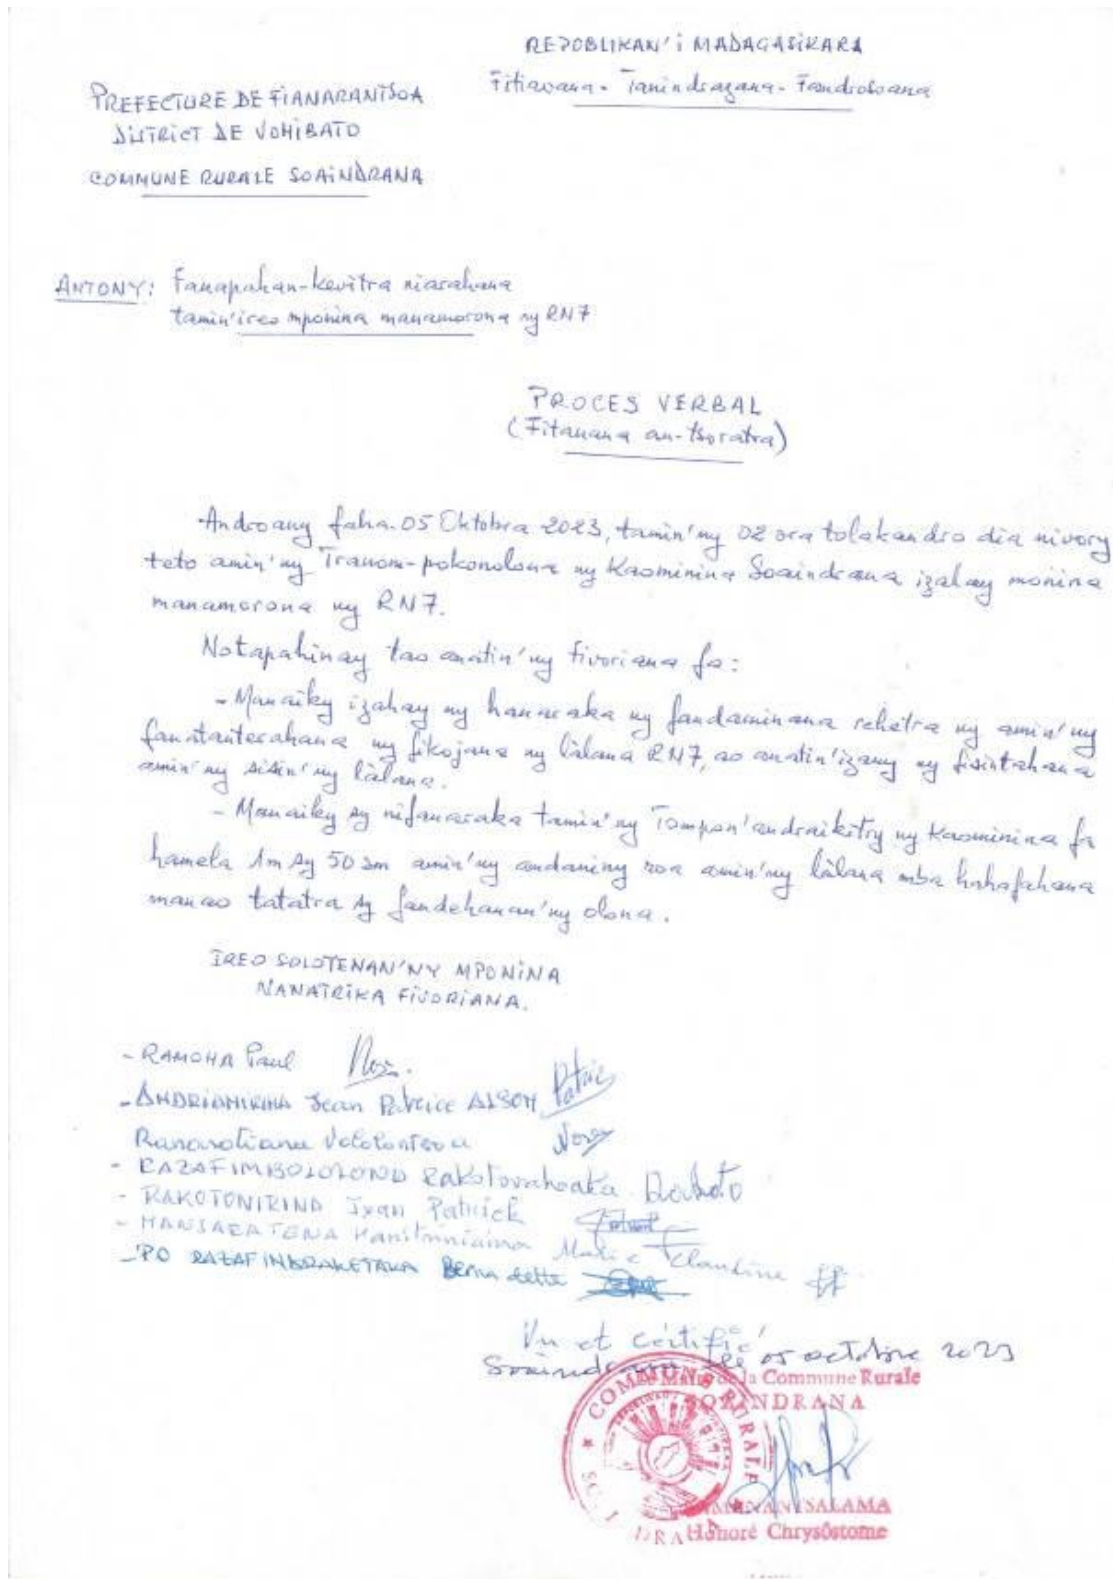 REPOBLIKAN'i MADAGASIKARA
Fitiavana - Tanindrazana - Fandrosoana
PREFECTURE DE FIANARANTSOA
DISTRICT DE VOHIBATO
COMMUNE RURALE SOAINDRANA
ANTONY: Fanapahan-kevitra niarahana
tamin'ireo mponina manamorona ny RN7
PROCES VERBAL
(Fitanana an-tsoratra)
Androany faha 05 Oktobra 2023, tamin'ny 02 ora tolakandro dia nivory
teto amin'ny Tranom-pokonolona ny Kaominina Soaindrana izahay monina
manamorona ny RN7.
Notapahinay tao anatin'ny fivoriana fa:
- Manaiky izahay ny hanaraka ny fandaminana rehetra ny amin'ny
fanatanterahana ny fikojana ny làlana RN7, ao anatin'izany ny fisintahana
amin'ny sisin'ny làlana.
- Manaiky sy nifanaraka tamin'ny Tompon'andraikitry ny Kaominina fa
hamela 1m sy 50 sm amin'ny andaniny roa amin'ny làlana mba hahafahana
manao tatatra sy fandehanan'ny olona.
IREO SOLOTENAN'NY MPONINA
NANATRIKA FIVORIANA.
- RAMOHA Paul
- ANDRIANIRINA Jean Patrice Patric
- RAZAFIMBOLOLONO Rakotovahoaka
- RAKOTONIRINA Jean Patrick
Marie Claudine
Vu et certifié
Soaindrana le 05 octobre 2023
Maire de la Commune Rurale
SOAINDRANA
COMMUNE RURALE
Honoré Chrysôstome